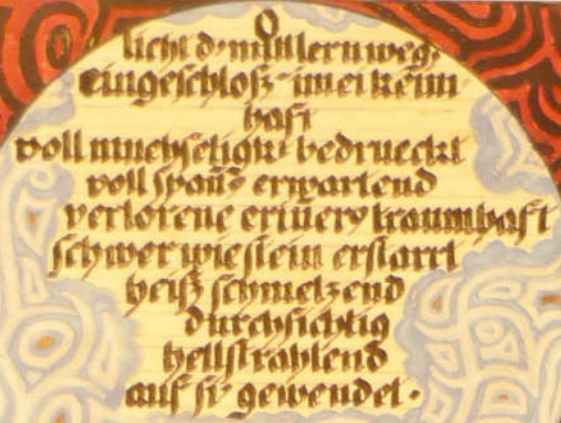 O
licht d. mittlern weg.
eingeschloß. im ei keim
haft
voll muehseligk. bedrueckt
voll spañ. erwartend
verlorene eriñer. traumhaft
schwer wie stein erstarrt
heiß schmelzend
durchsichtig
hellstrahlend
auf si. gewendet.